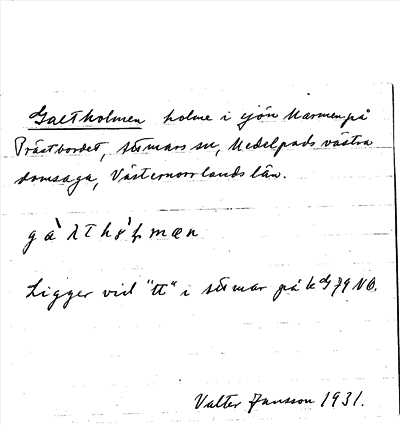 Galtholmen holme i sjön Marmen på
Prästbordet, Stt̲mars sn, Medelpads västra
domsaga, Västernorrlands län.
gàλthò̵ɫmæn
Ligger vid "tt" i Sttmar på k bl 79 NO.
Valter Jansson 1931.